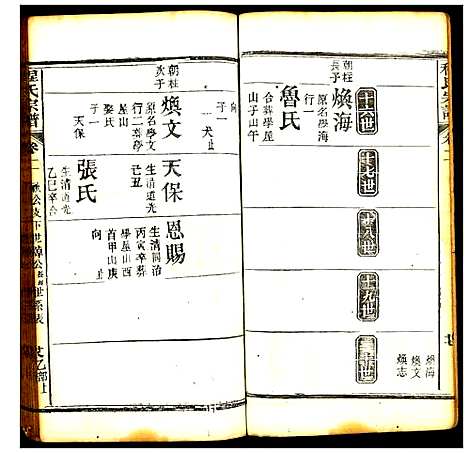 十六世
十七世
十八世
十九世
二十世
朝柱
長子
煥海
原名學海
行一
魯氏
合葬學屋
山子山午
向
煥海
煥文
煥志
止
子一
朝柱
次子
煥文
原名學文
行二葬學
屋山
娶氏
子一
天保
天保
生清道光
己丑
張氏
生清道光
乙巳卒合
恩賜
生清同治
丙寅卒葬
學屋山西
首甲山庚
向
止
程氏宗譜
卷二